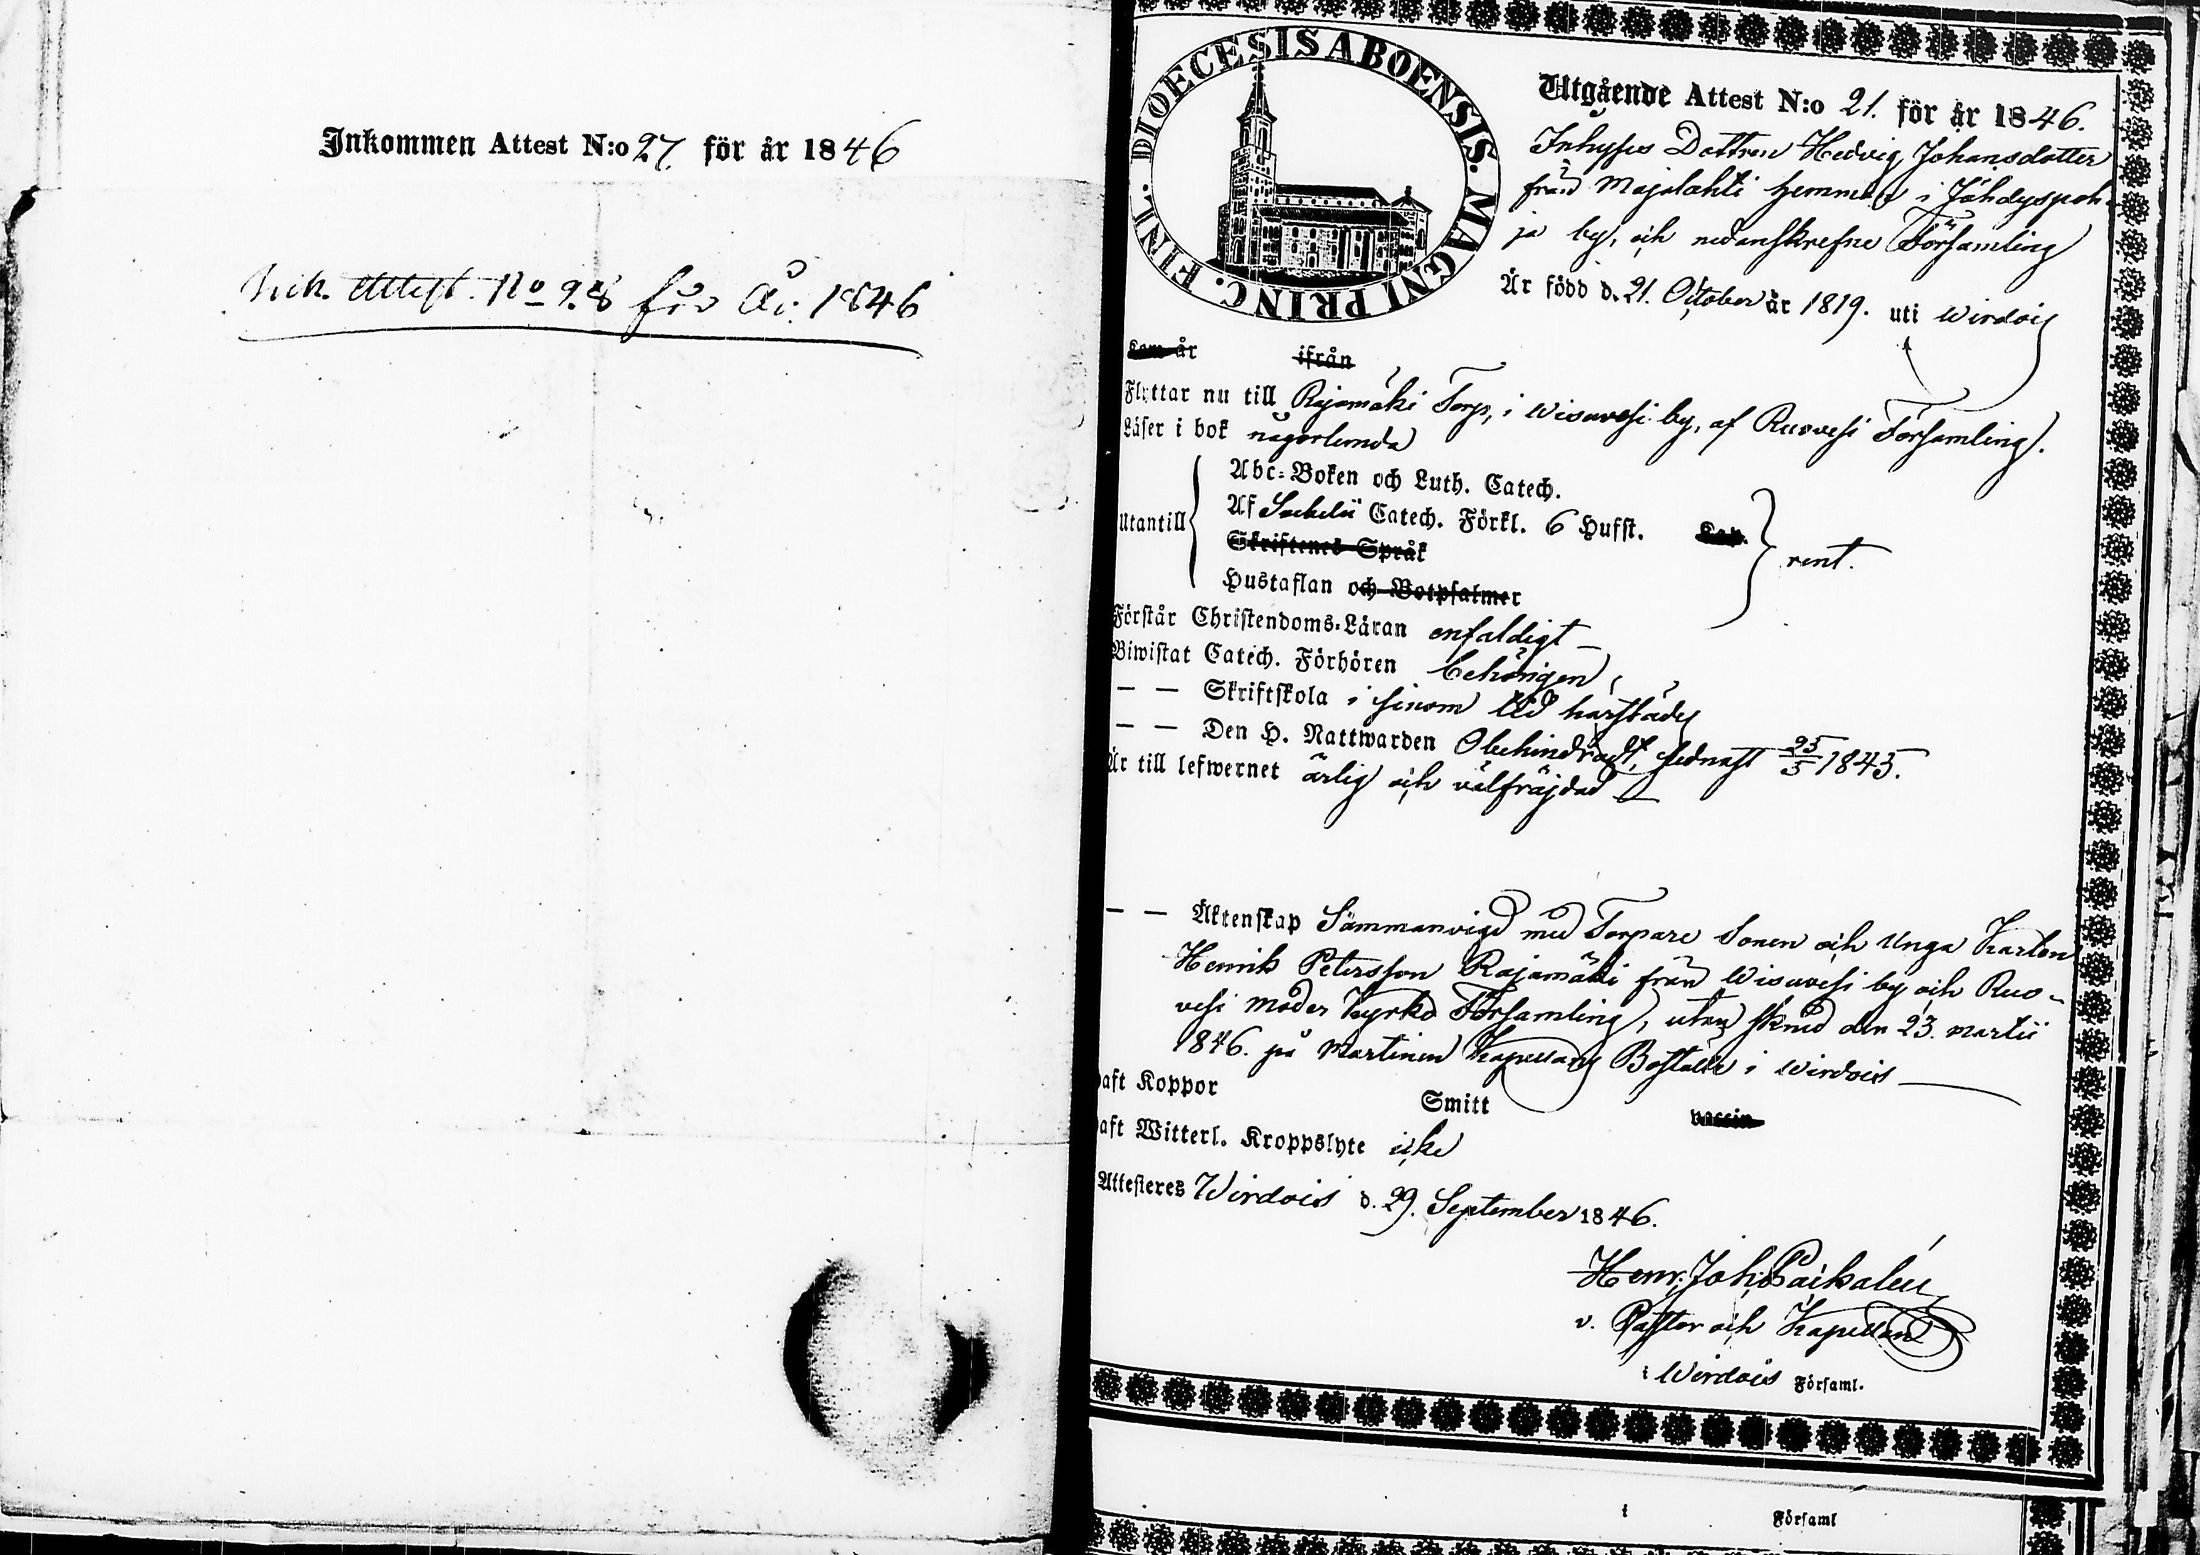 Inkommen Attest N:o 27. för år 1846
Ink. Attest. No 98 för År 1846
DIOECESIS ABOENSIS. MAGNI PRINC. FINL.
Utgående Attest N:o 21. för år 1846.
Inhyses Dottren Hedvig Johansdotter
från Majalahti hemman i Jähdyspoh-
ja by, och nedanskrefne Församling
Är född d. 21. October år 1819. uti Wirdois
Kom år ifrån
Flyttar nu till Rajamäki Torp, i Wisuvesi by, af Ruovesi Församling.
Läser i bok någorlunda
Utantill
Abc-Boken och Luth. Catech.
Af Catech. Förkl. 6 Hufst. Kap.
Skriftenes Språk
Hustaflan och Botpsalmer
rent.
Förstår Christendoms-Läran enfaldigt
Biwistat Catech. Förhören behörigen
— — Skriftskola i sinom tid härstädes
— — Den H. Nattwarden Obehindradt, sednast 25/5 1845.
Är till lefwernet ärlig och välfräjdad
— — Äktenskap Sammanvigd med Torpare Sonen och Unga Karlen
Henrik Petersson Rajamäki från Wisuvesi by och Ruo-
vesi Moder Kyrko Församling, utan den 23. Martii
1846. på Martinen Kapellans Boställe i Wirdois
haft Koppor Smitt vaccin
haft Witterl. Kroppslyte icke
Attesteres Wirdois d. 29. September 1846.
Henr. Joh. Paikalén
v. Pastor och Kapellan
i Wirdois Församl.
i Församl